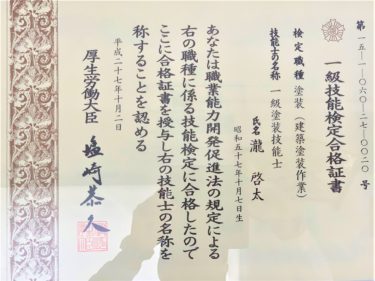 第一五―一―〇六〇―二七―〇〇二〇号
一級技能検定合格証書
検定職種 塗装(建築塗装作業)
技能士の名称 一級塗装技能士
氏名 瀧 啓太
昭和五十七年十月七日生
あなたは職業能力開発促進法の規定による
右の職種に係る技能検定に合格したので
ここに合格証書を授与し右の技能士の名称を
称することを認める
平成二十七年十月二日
厚生労働大臣 塩崎恭久